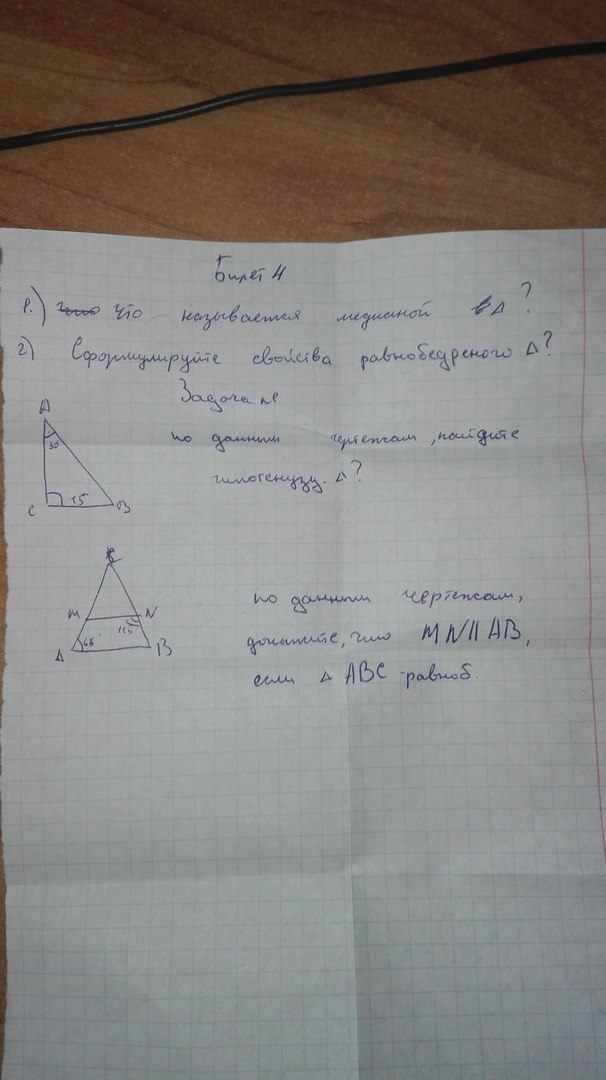 Билет 4
1.) что Что называется медианой в Δ?
2) Сформулируйте свойства равнобедреного Δ?
Задача №
A
30
C
15
B
по данным чертежам, найдите
гипотенузу. Δ?
M
N
115
65°
A
B
по данным чертежам,
докажите, что MN||AB,
если Δ ABC равноб.